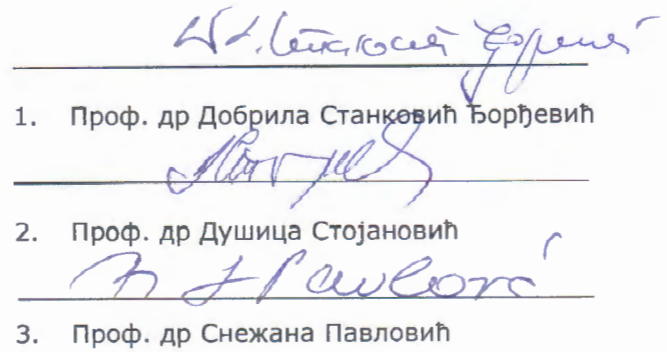 1. Проф. др Добрила Станковић Ђорђевић
2. Проф. др Душица Стојановић
Pavlović
3. Проф. др Снежана Павловић